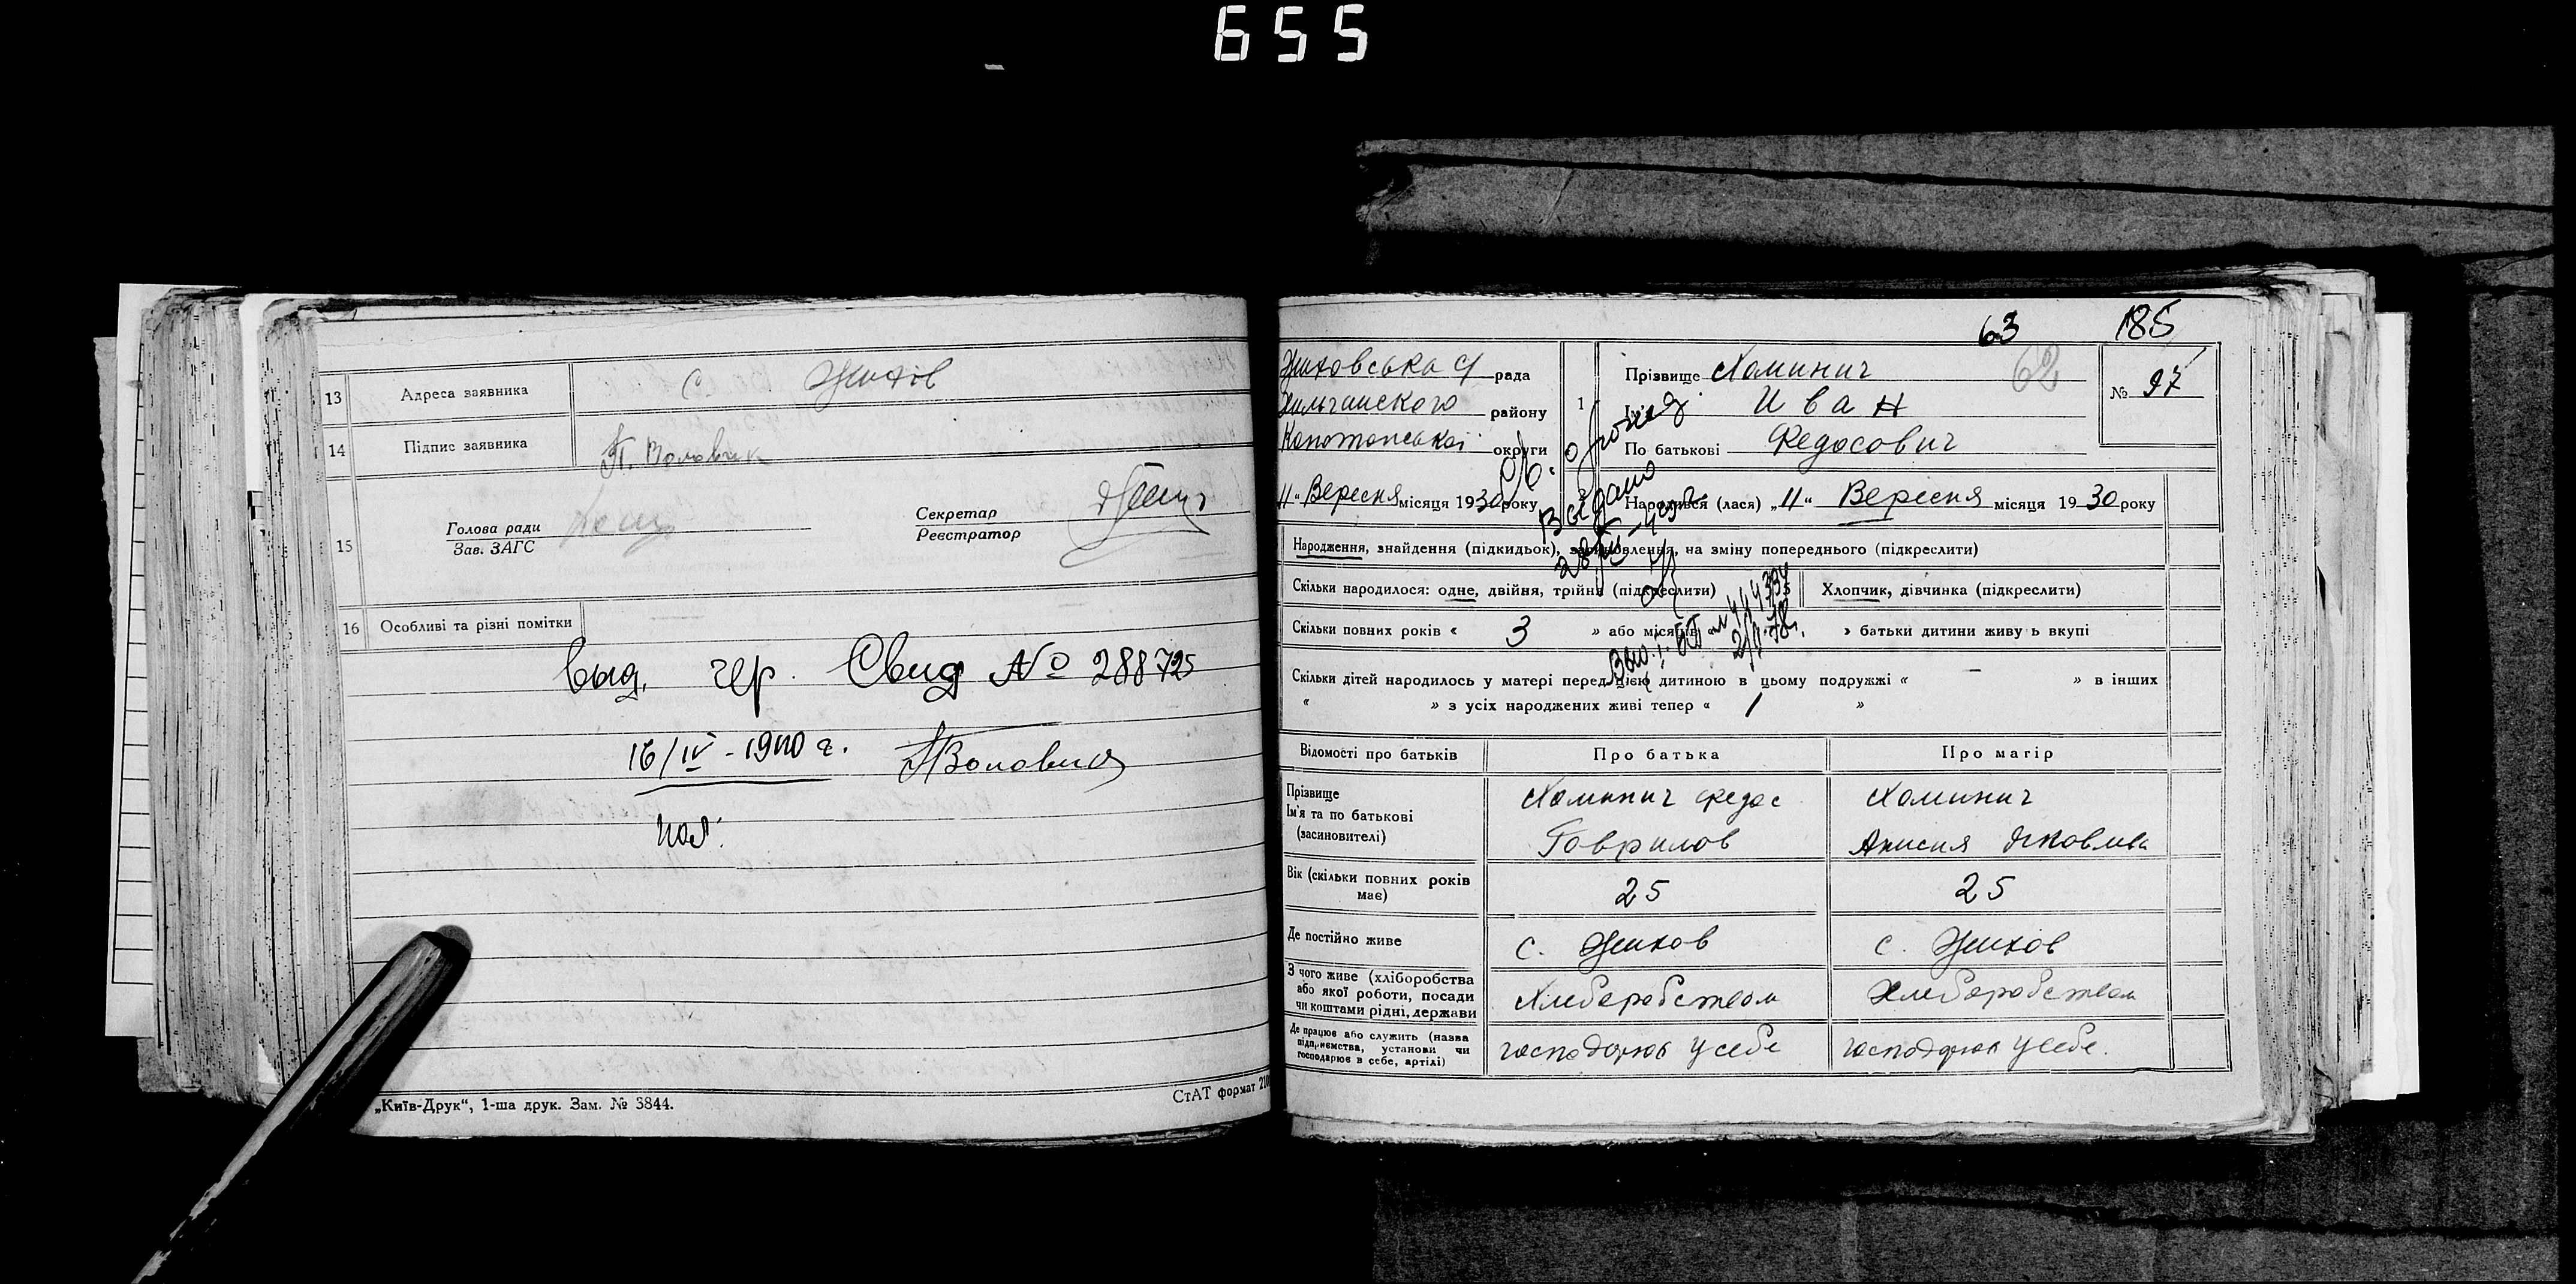 655
13 Адреса заявника с. Жихов
14 Підпис заявника П. Воловик
15 Голова ради
Зав. ЗАГС
Секретар
Реєстратор
16 Особливі та різні помітки
Выд. Свид № 288725
16/IV - 1940 г.
„Київ-Друк“, 1-ша друк. Зам. № 3844.
СтАТ формат
63 185
62
Жиховська с/ рада
району
Конотопської округи
„11“ Вересня місяця 1930 року
1
Прізвище Хоминич
Іван
По батькові Федосович
№ 97
Народився (лася) „11“ Вересня місяця 1930 року
Народження, знайдення (підкидьок), на зміну попереднього (підкреслити)
Скільки народилося: одне, двійня, трійня (підкреслити)
Хлопчик, дівчинка (підкреслити)
Скільки повних років « 3 » або місяців » батьки дитини живуть вкупі
Скільки дітей народилось у матері перед цією дитиною в цьому подружжі « – » в інших
« » з усіх народжених живі тепер « 1 »
Відомості про батьків Про батька Про матір
Прізвище
Ім'я та по батькові
(засиновителі)
Хоминич Федос
Гаврилов
Хоминич
Анисия Яковлив
Вік (скільки повних років
має)
25 25
Де постійно живе с. Жихов с. Жихов
З чого живе (хліборобства
або якої роботи, посади
чи коштами рідні, держави
Хлеборобством Хлеборобством
Де працює або служить (назва
підприємства, установи чи
господарює в себе, артілі)
господарюв у себе господарюв у себе.
Выдано